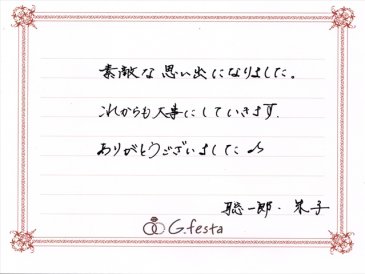 素敵な思い出になりました。
これからも大事にしていきます.
ありがとうございました♪
聡一郎・朱子
G.festa